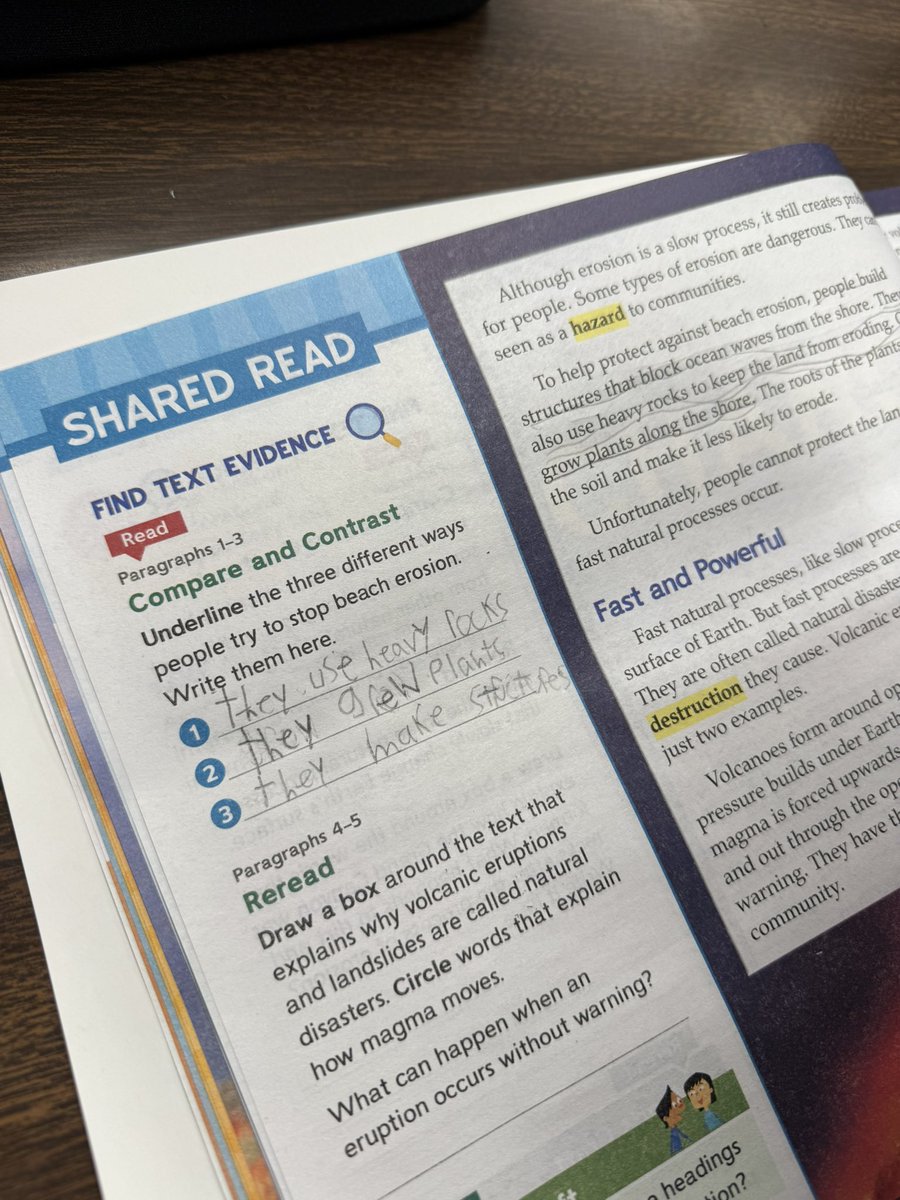 SHARED READ
FIND TEXT EVIDENCE
Read
Paragraphs 1–3
Compare and Contrast
Underline the three different ways
people try to stop beach erosion.
Write them here.
1 they use heavy rocks
2 they grew plants
3 they make
Paragraphs 4–5
Reread
Draw a box around the text that
explains why volcanic eruptions
and landslides are called natural
disasters. Circle words that explain
how magma moves.
What can happen when an
eruption occurs without warning?
headings
Although erosion is a slow process, it still creates
for people. Some types of erosion are dangerous. They
seen as a hazard to communities.
To help protect against beach erosion, people build
structures that block ocean waves from the shore. They
also use heavy rocks to keep the land from eroding.
grow plants along the shore. The roots of the plants
the soil and make it less likely to erode.
Unfortunately, people cannot protect the
fast natural processes occur.
Fast and Powerful
Fast natural processes, like slow
surface of Earth. But fast processes are
They are often called natural
destruction they cause. Volcanic
just two examples.
Volcanoes form around
pressure builds under
magma is forced upwards
and out through the
warning. They have
community.